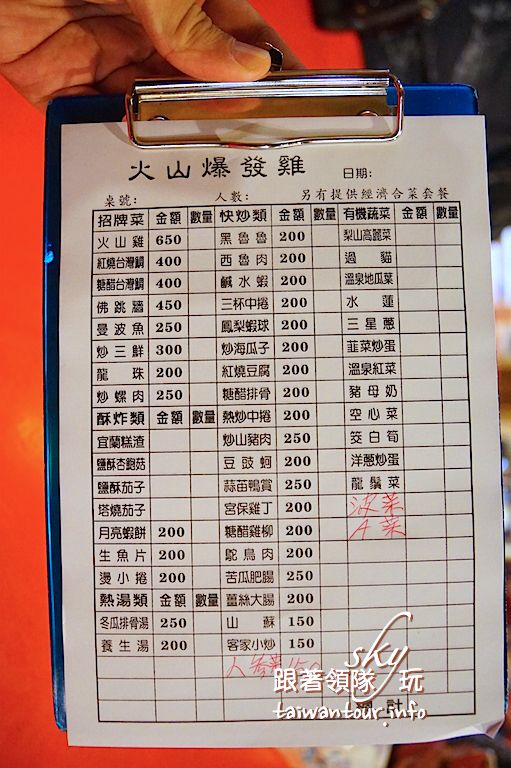 火山爆發雞 日期:
桌號: 人數: 另有提供經濟合菜套餐
招牌菜 金額 數量 快炒類 金額 數量 有機蔬菜 金額 數量
火山雞 650 黑魯魯 200 梨山高麗菜
紅燒台灣鯛 400 西魯肉 200 過貓
糖醋台灣鯛 400 鹹水蝦 200 溫泉地瓜菜
佛跳牆 450 三杯中捲 200 水蓮
曼波魚 250 鳳梨蝦球 200 三星蔥
炒三鮮 300 炒海瓜子 200 韮菜炒蛋
龍珠 200 紅燒豆腐 200 溫泉紅菜
炒螺肉 250 糖醋排骨 200 豬母奶
酥炸類 金額 數量 熱炒中捲 200 空心菜
宜蘭糕渣 炒山豬肉 250 筊白筍
鹽酥杏鮑菇 豆豉蚵 200 洋蔥炒蛋
鹽酥茄子 蒜苗鴨賞 250 龍鬚菜
塔燒茄子 宮保雞丁 200 波菜
月亮蝦餅 200 糖醋雞柳 200 A菜
生魚片 200 鴕鳥肉 200
燙小捲 200 苦瓜肥腸 250
熱湯類 金額 數量 薑絲大腸 200
冬瓜排骨湯 250 山蘇 150
養生湯 200 客家小炒 150
人參菜 150
sky
跟著領隊 玩
taiwantour.info